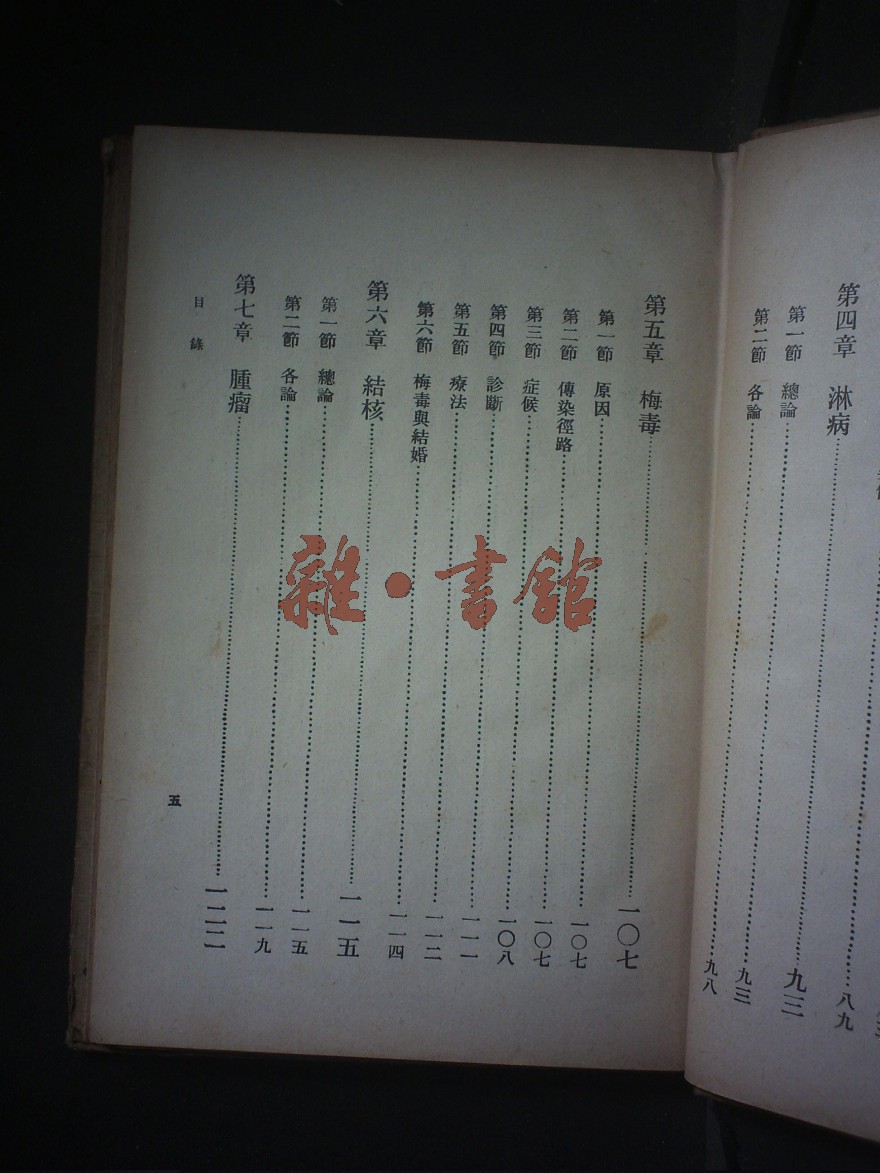 八九
第四章 淋病……九三
第一節 總論……九三
第二節 各論……九八
第五章 梅毒……一〇七
第一節 原因……一〇七
第二節 傳染徑路……一〇七
第三節 症候……一〇八
第四節 診斷……一一一
第五節 療法……一一二
第六節 梅毒與結婚……一一四
第六章 結核……一一五
第一節 總論……一一五
第二節 各論……一一九
第七章 腫瘤……一二二
目錄
五
雜·書館